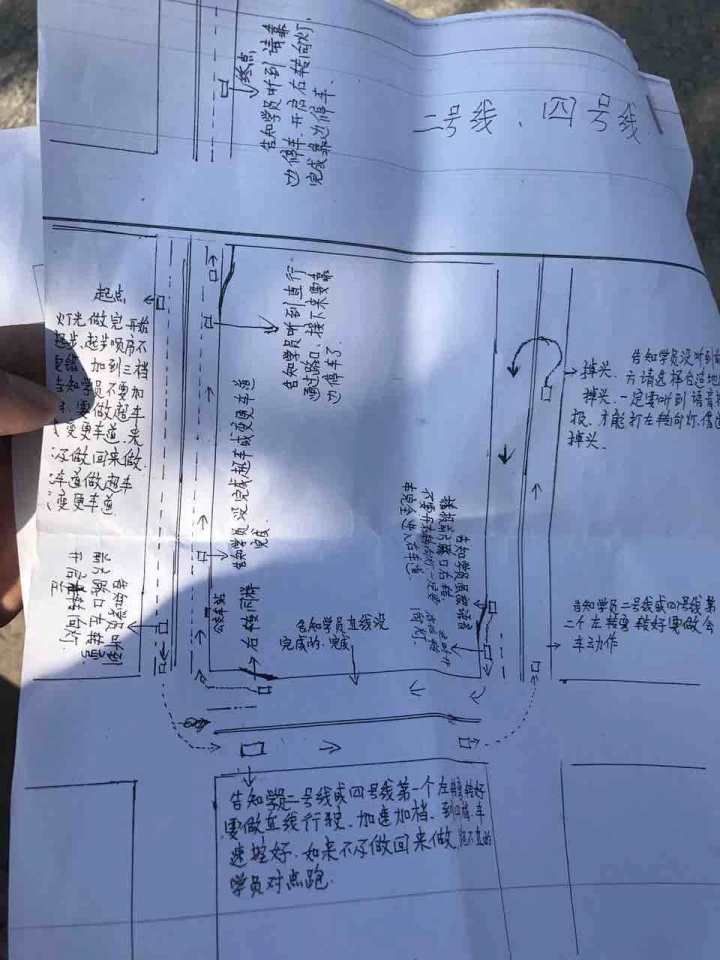 二号线、四号线
终点
告知学员听到请靠
边停车.开启右转向灯,
完成靠边停车.
起点
灯光做完开始
起步.起步顺序不
加到三档
告知学员不要加
要做超车
变更车道.来
不及做回来做.
车道做超车
变更车道
告知学员听到
前方路口左转弯
开启左转向灯.
告知学员听到直行
通过路口,接下来要靠
边停车了.
告知学员没完成超车或变更车道
完成.
公交车站
右转同样
告知学员直线没
完成的.完成
掉头. 告知学员没听到
方请选择合适地
掉头.一定要听到请
报.才能打左转向灯.借道
掉头.
告知学员二号线或四号线第
二个左转弯转好要做会
车动作
告知学员二号线或四号线第一个左转弯转好
要做直线行驶.加速加档.到 档.车
速控好.如来不及做回来做.跑不直的
学员对点跑.